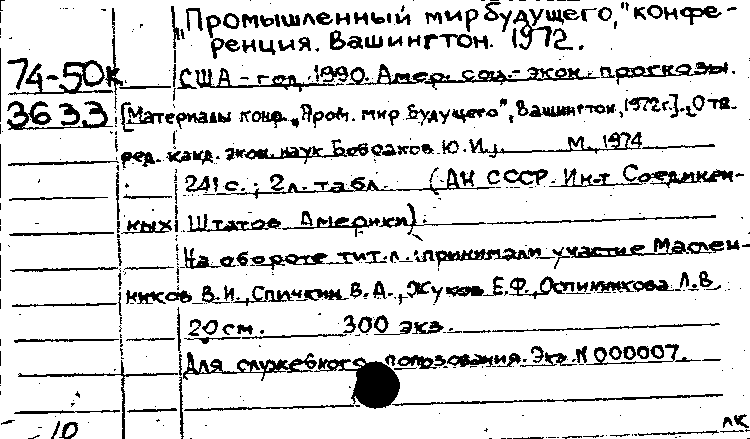 "Промышленный мир будущего," конфе-
ренция. Вашингтон. 1972.
74-50к США - год 1990. Амер. соц.-экон. прогнозы.
3633 [Материалы конф. "Пром. мир будущего", Вашингтон, 1972г.]. Отв.
ред. канд. экон. наук Бобраков Ю.И. М., 1974
241 с.; 2 л. табл. (АН СССР. Ин-т Соединен-
ных Штатов Америки).
На обороте тит. л.: принимали участие Маслен-
ников В.И., Спичкин В.А., Жуков Е.Ф., Оспинникова Л.В.
20 см. 300 экз.
Для служебного пользования. Экз. N 000007.
10
лк